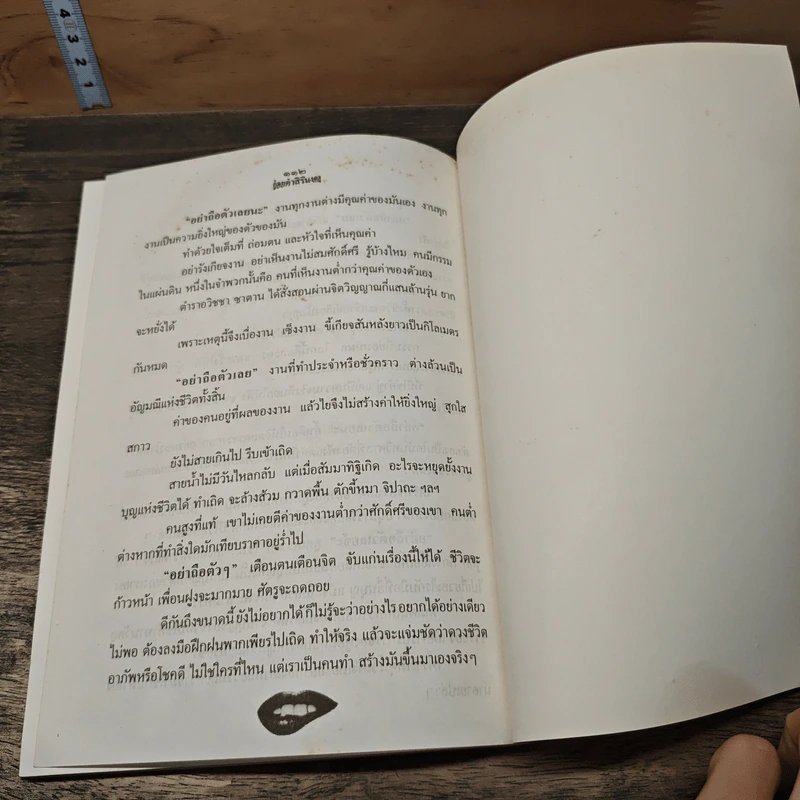 4
3
2
1
๑๑๒
"อย่าถือตัวเลยนะ" งานทุกงานต่างมีคุณค่าของมันเอง งานทุก
งานเป็นความยิ่งใหญ่ของตัวของมัน
ทำด้วยใจเต็มที่ ถ่อมตน และหัวใจที่เห็นคุณค่า
อย่ารังเกียจงาน อย่าเห็นงานไม่สมศักดิ์ศรี รู้บ้างไหม คนมีกรรม
ในแผ่นดิน หนึ่งในจำพวกนั้นคือ คนที่เห็นงานต่ำกว่าคุณค่าของตัวเอง
ตำราอวิชชา ซาตาน ได้สั่งสอนผ่านจิตวิญญาณกี่แสนล้านรุ่น ยาก
จะหยั่งได้
เพราะเหตุนี้จึงเบื่องาน เซ็งงาน ขี้เกียจสันหลังยาวเป็นกิโลเมตร
กันหมด
"อย่าถือตัวเลย" งานที่ทำประจำหรือชั่วคราว ต่างล้วนเป็น
อัญมณีแห่งชีวิตทั้งสิ้น
ค่าของคนอยู่ที่ผลของงาน แล้วไยจึงไม่สร้างค่าให้ยิ่งใหญ่ สุกใส
สกาว
ยังไม่สายเกินไป รีบเข้าเถิด
สายน้ำไม่มีวันไหลกลับ แต่เมื่อสัมมาทิฐิเกิด อะไรจะหยุดยั้งงาน
บุญแห่งชีวิตได้ ทำเถิด จะล้างส้วม กวาดพื้น ตักขี้หมา จิปาถะ ฯลฯ
คนสูงที่แท้ เขาไม่เคยตีค่าของงานต่ำกว่าศักดิ์ศรีของเขา คนต่ำ
ต่างหากที่ทำสิ่งใดมักเทียบราคาอยู่ร่ำไป
"อย่าถือตัวๆ" เตือนตนเตือนจิต จับแก่นเรื่องนี้ให้ได้ ชีวิตจะ
ก้าวหน้า เพื่อนฝูงจะมากมาย ศัตรูจะถดถอย
ดีกันถึงขนาดนี้ ยังไม่อยากได้ ก็ไม่รู้จะว่าอย่างไร อยากได้อย่างเดียว
ไม่พอ ต้องลงมือฝึกฝนพากเพียรไปเถิด ทำให้จริง แล้วจะแจ่มชัดว่าดวงชีวิต
อาภัพหรือโชคดี ไม่ใช่ใครที่ไหน แต่เราเป็นคนทำ สร้างมันขึ้นมาเองจริงๆ